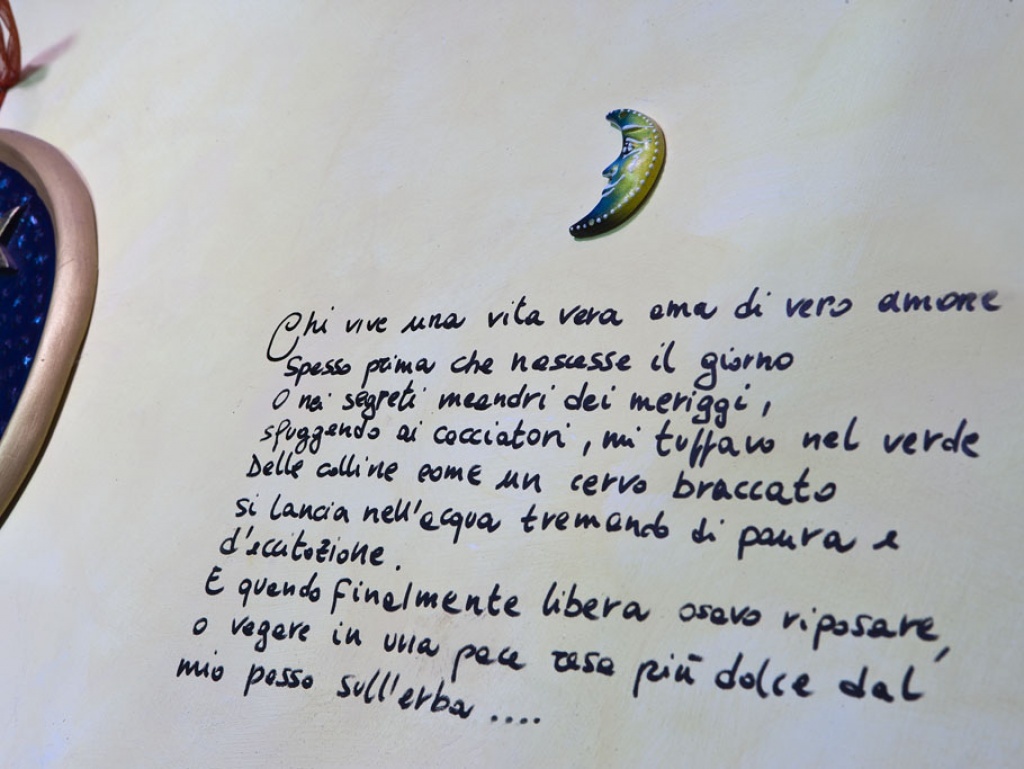 Chi vive una vita vera ama di vero amore
Spesso prima che nascesse il giorno
O nei segreti meandri dei meriggi,
sfuggendo ai cacciatori, mi tuffavo nel verde
Delle colline come un cervo braccato
si lancia nell'acqua tremando di paura e
d'eccitazione.
E quando finalmente libera osavo riposare,
o vagare in una pace resa più dolce dal
mio passo sull'erba ....